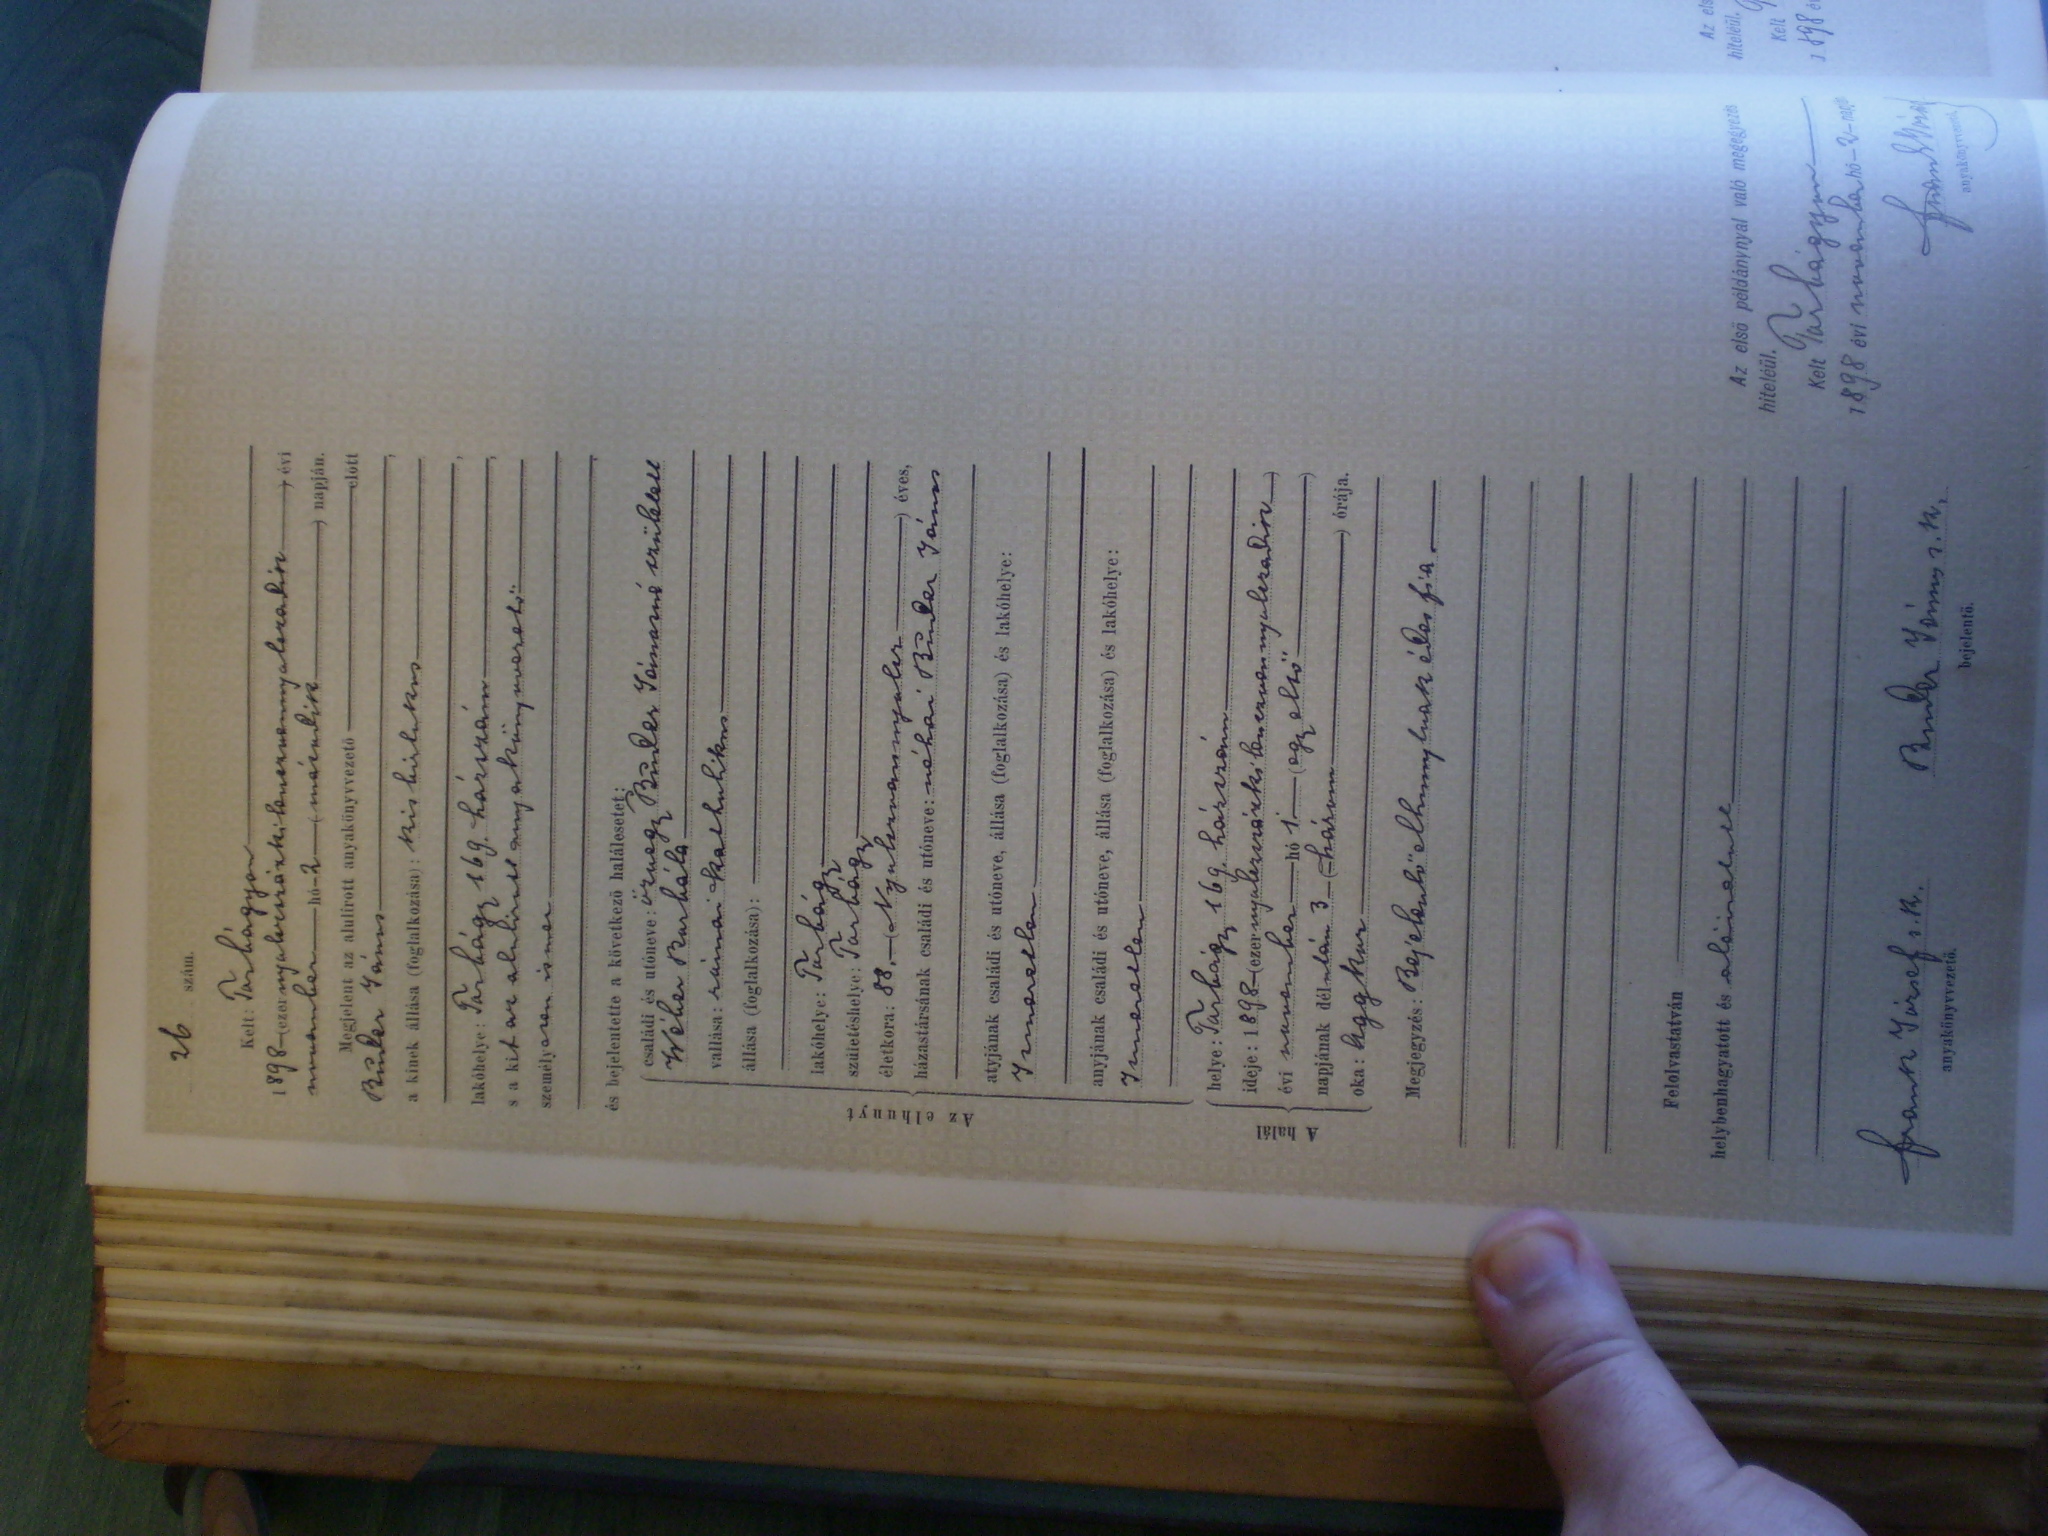 26 szám.
Kelt: Tarhágyon
1898 (ezernyolczszázkilenczvennyolczadik) évi
november hó 2 (második) napján.
Megjelent az alulirott anyakönyvvezető előtt
Binder János,
a kinek állása (foglalkozása): kisbirtokos
lakóhelye: Tarhágy 169. házszám,
s a kit az alulirott anyakönyvvezető
személyesen ismer
és bejelentette a következő halálesetet:
Az elhunyt
családi és utóneve: özvegy Binder Jánosné született
Weber Borbála
vallása: római katholikus
állása (foglalkozása):
lakóhelye: Tarhágy
születéshelye: Tarhágy
életkora: 88. (Nyolczvannyolcz) éves,
házastársának családi és utóneve: néhai Binder János
atyjának családi és utóneve, állása (foglalkozása) és lakóhelye:
Ismeretlen
anyjának családi és utóneve, állása (foglalkozása) és lakóhelye:
Ismeretlen
A halál
helye: Tarhágy 169. házszám
ideje: 1898 (ezernyolczszázkilenczvennyolczadik)
évi november hó 1 (egy első)
napjának délután 3 (három) órája.
oka: Aggkor
Megjegyzés: Bejelentő elhunytnak édes fia.
Felolvastatván
helybenhagyatott és aláiratott
Frank József s.k. Binder János s.k.
anyakönyvvezető. bejelentő.
Az első példánnyal való megegyezés
hiteléül.
Kelt Tarhágyon
1898 évi november hó 2 napján
Frank József
anyakönyvvezető
Az els
hiteléül.
Kelt
1898 év